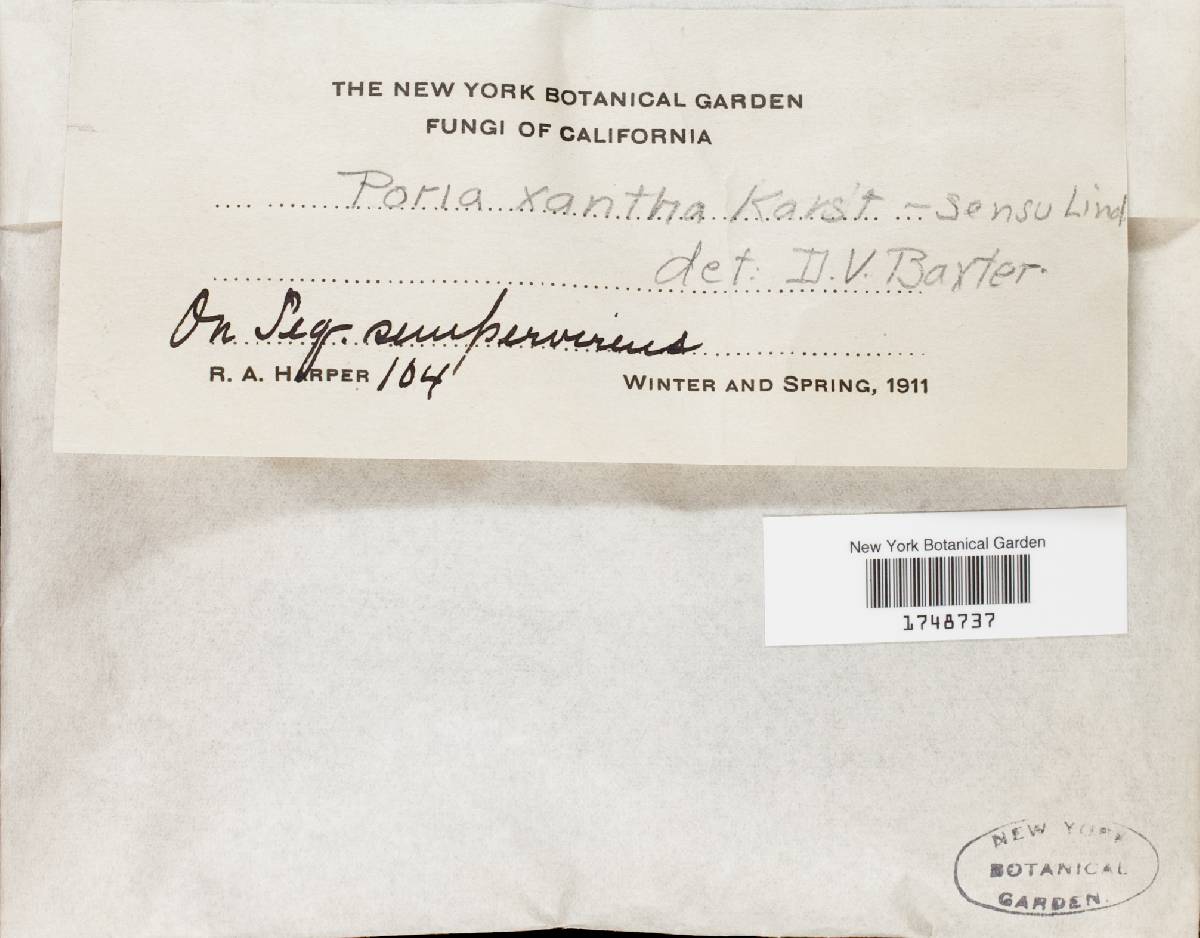 THE NEW YORK BOTANICAL GARDEN
FUNGI OF CALIFORNIA
Poria xantha Karst - sensu Lind
det. D.V. Baxter.
On Seq. sempervirens
R. A. HARPER 104 WINTER AND SPRING, 1911
New York Botanical Garden
1748737
NEW YORK
BOTANICAL
GARDEN.